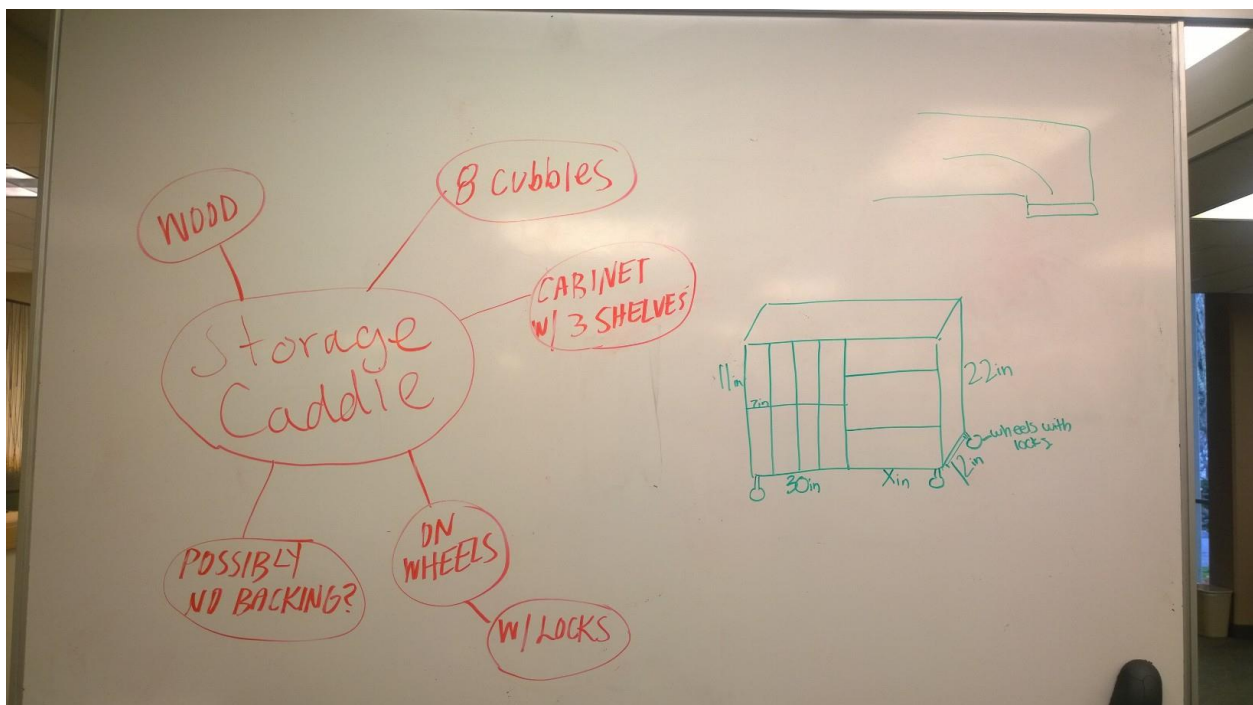 WOOD
8 cubbles
CABINET
W/ 3 SHELVES
Storage
Caddie
POSSIBLY
NO BACKING?
ON
WHEELS
W/ LOCKS
11in
7in
22in
wheels with
locks
12in
30in
Xin